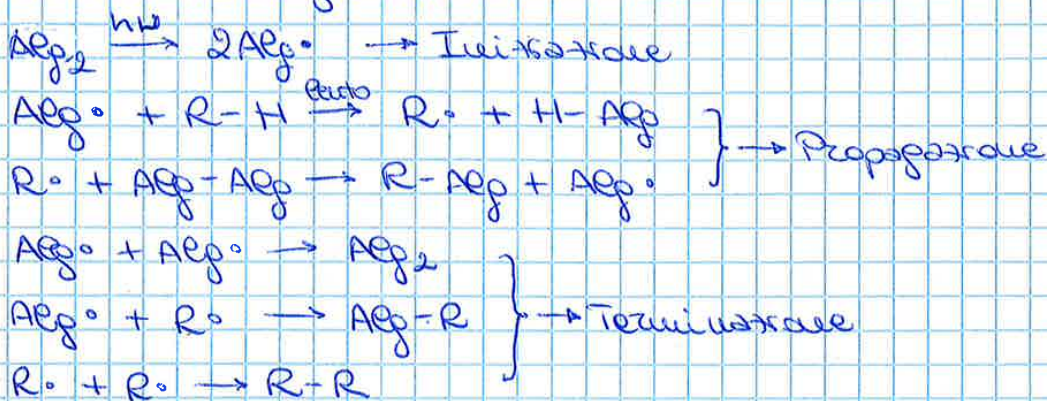 Alg₂ —hν→ 2Alg• → Iniziazione
Alg• + R-H —lento→ R• + H-Alg
R• + Alg-Alg → R-Alg + Alg• } → Propagazione
Alg• + Alg• → Alg₂
Alg• + R• → Alg-R } → Terminazione
R• + R• → R-R